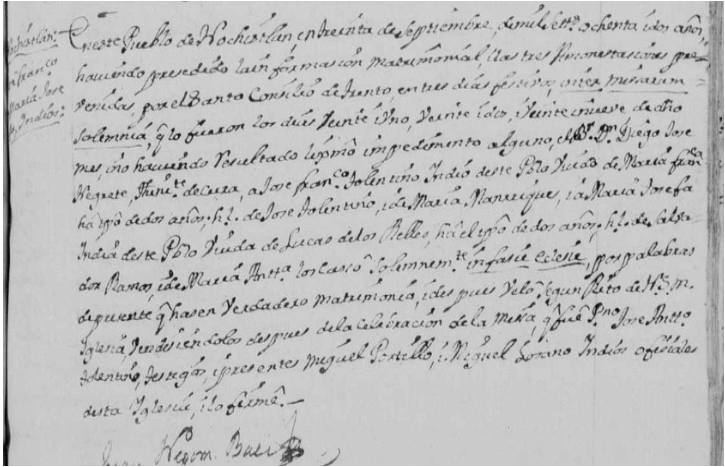 Nochistlan.
Franco
Maria Jose
Indios.
En este Pueblo de Nochistlan, en treinta de Septiembre, de mil setts. ochenta i dos años,
haviendo presedido la informasion matrimonial i las tres Amonestasiones pre-
venidas, por el Santo Consilio de Trento en tres dias festivos, inter misarum
Solemnia, q lo fueron los dias Veinte i Uno, Veinte i dos, i Veinte i nueve de dho
mes, i no haviendo resultado lexmo impedimento alguno, el Br. Dn. Diego Jose
Negrete, Thinte. de Cura, a Jose Franco. Tolentino Indio deste Pblo Viudo de Maria Franca.
ha tpo de dos años, h. l. de Jose Tolentino, i de Maria Manrique, i a Maria Josefa
India deste Pblo Viuda de Lucas de los Relles, ha el tpo de dos años, h. l. de Salva-
dor Ramos, i de Maria Antta. los casso Solemnemte. in fasie eclesie, por palabras
de presente q hasen Verdadero matrimonio, i despues Velo segun Rito de N. S. M.
Iglesia Vendisiendolos despues de la Celebracion de la Missa q fue Pno. Jose Antto.
Tolentino, testigos, i presentes Miguel Portillo, i Miguel Lozano Indios ofisiales
desta Iglesia, i lo firmè.
Juan Nepom.